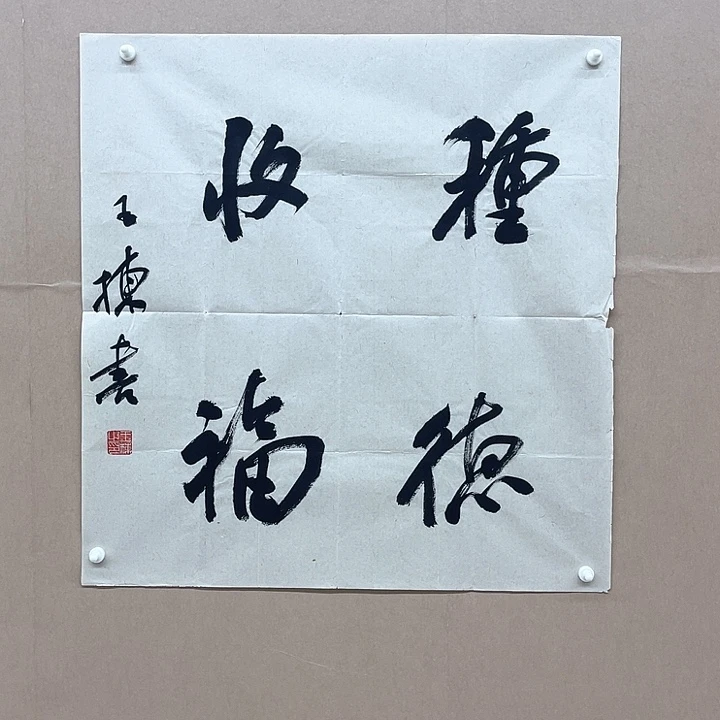 種德
收福
王揀書